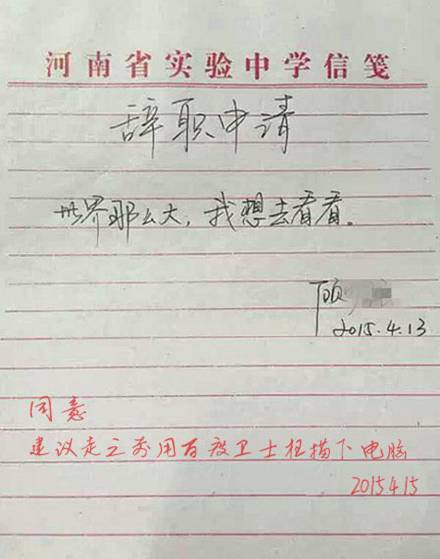 河南省实验中学信笺
辞职申请
世界那么大，我想去看看。
顾
2015.4.13
同意
建议走之前用百度卫士扫描下电脑
20154.15